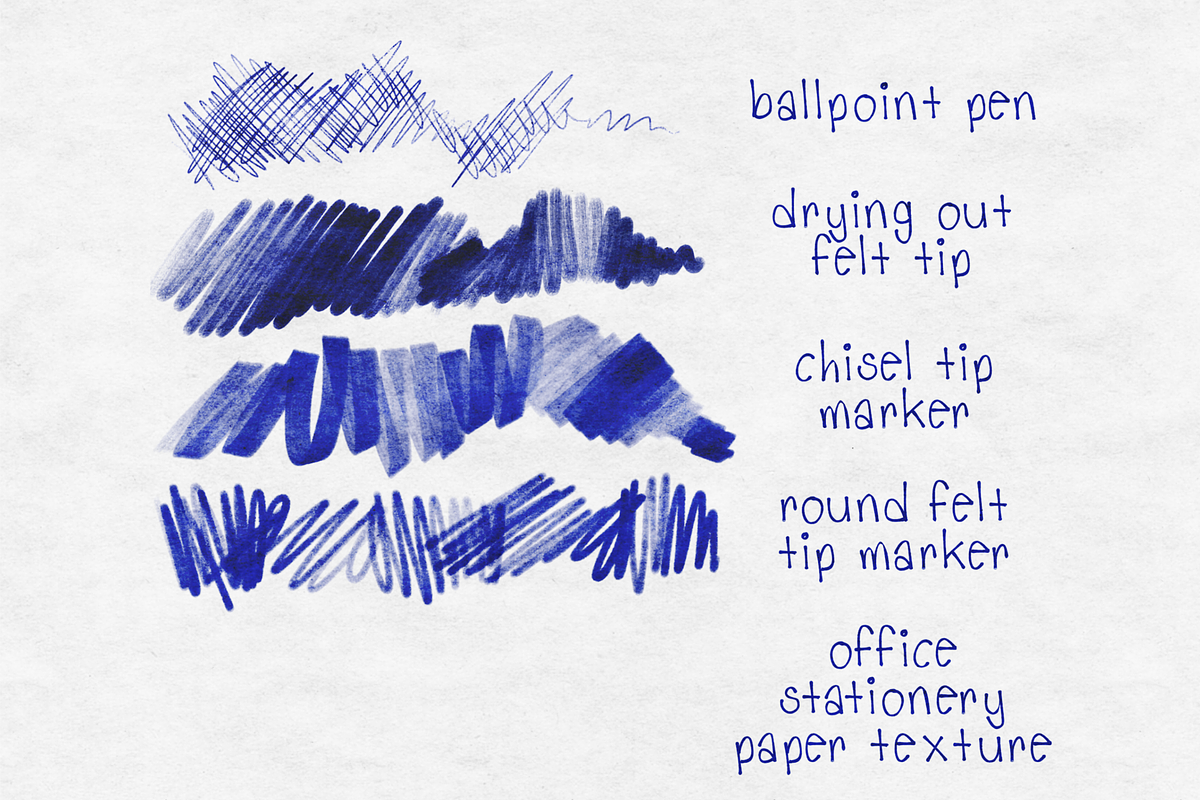 ballpoint pen
drying out
felt tip
chisel tip
marker
round felt
tip marker
office
stationery
paper texture